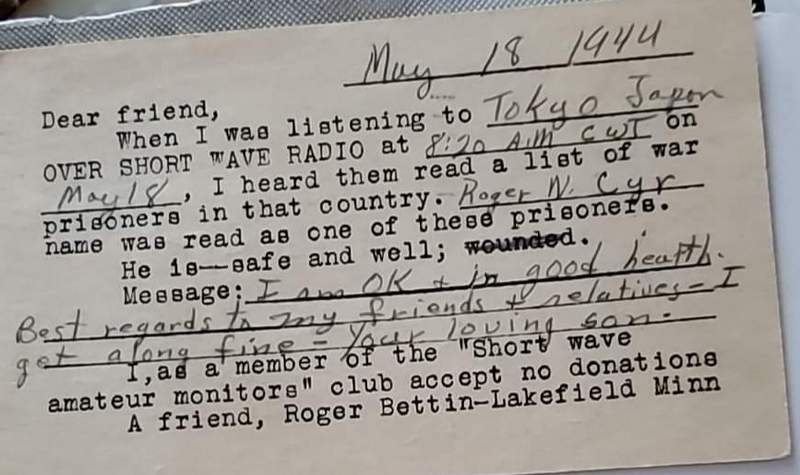 May 18 1944
Dear friend,
When I was listening to Tokyo Japon
OVER SHORT WAVE RADIO at 8:20 A.M CWT on
May 18, I heard them read a list of war
prisoners in that country. Roger N. Cyr
name was read as one of these prisoners.
He is--safe and well; wounded.
Message: I am OK + in good health.
Best regards to my friends + relatives - I
get along fine - Your loving son.
I,as a member of the "Short wave
amateur monitors" club accept no donations
A friend, Roger Bettin-Lakefield Minn